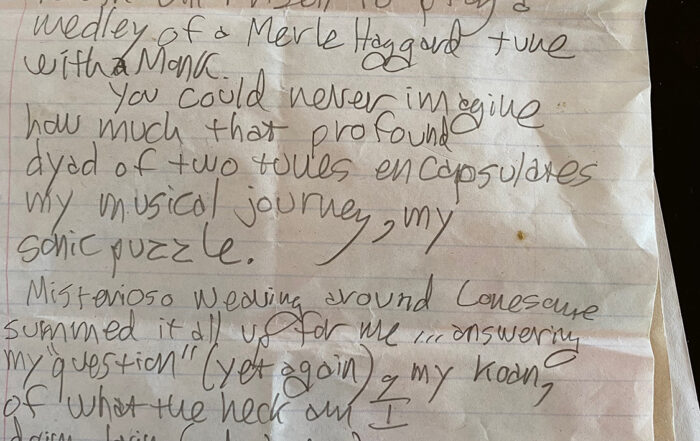 medley of a Merle Haggard tune
with a Monk.
You could never imagine
how much that profound
dyad of two tunes encapsulates
my musical journey, my
sonic puzzle.
Misterioso weaving around Lonesome
summed it all up for me ... answering
my "question" (yet again), my koan,
of what the heck am I